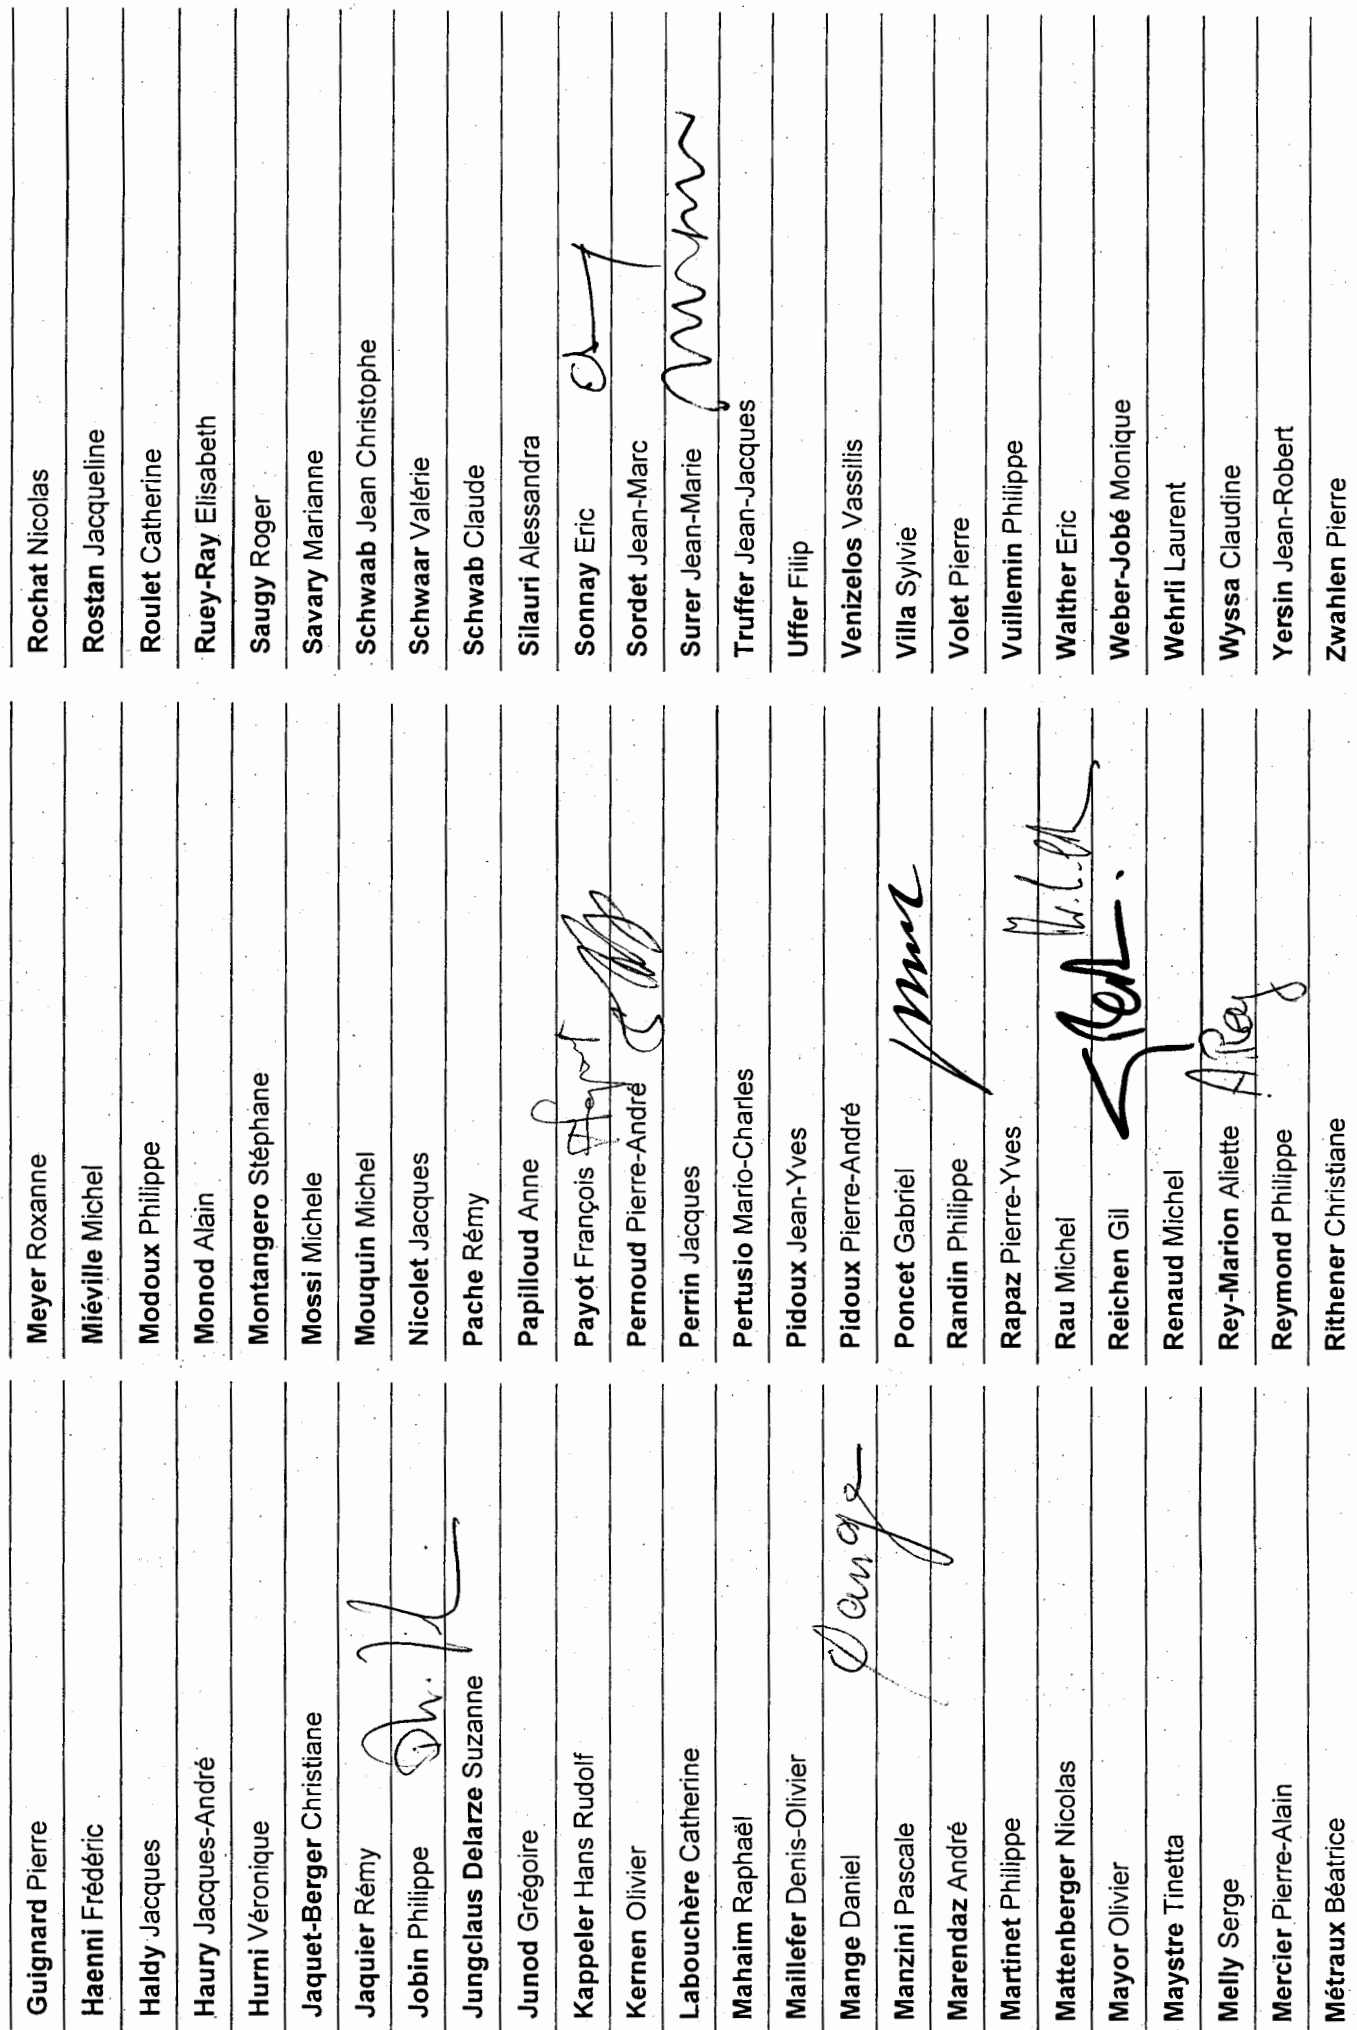 Guignard Pierre
Haenni Frédéric
Haldy Jacques
Haury Jacques-André
Hurni Véronique
Jaquet-Berger Christiane
Jaquier Rémy
Jobin Philippe
Jungclaus Delarze Suzanne
Junod Grégoire
Kappeler Hans Rudolf
Kernen Olivier
Labouchère Catherine
Mahaim Raphaël
Maillefer Denis-Olivier
Mange Daniel
Manzini Pascale
Marendaz André
Martinet Philippe
Mattenberger Nicolas
Mayor Olivier
Maystre Tinetta
Melly Serge
Mercier Pierre-Alain
Métraux Béatrice
Meyer Roxanne
Miéville Michel
Modoux Philippe
Monod Alain
Montangero Stéphane
Mossi Michele
Mouquin Michel
Nicolet Jacques
Pache Rémy
Papilloud Anne
Payot François
Pernoud Pierre-André
Perrin Jacques
Pertusio Mario-Charles
Pidoux Jean-Yves
Pidoux Pierre-André
Poncet Gabriel
Randin Philippe
Rapaz Pierre-Yves
Rau Michel
Reichen Gil
Renaud Michel
Rey-Marion Aliette ARey
Reymond Philippe
Rithener Christiane
Rochat Nicolas
Rostan Jacqueline
Roulet Catherine
Ruey-Ray Elisabeth
Saugy Roger
Savary Marianne
Schwaab Jean Christophe
Schwaar Valérie
Schwab Claude
Silauri Alessandra
Sonnay Eric
Sordet Jean-Marc
Surer Jean-Marie
Truffer Jean-Jacques
Uffer Filip
Venizelos Vassilis
Villa Sylvie
Volet Pierre
Vuillemin Philippe
Walther Eric
Weber-Jobé Monique
Wehrli Laurent
Wyssa Claudine
Yersin Jean-Robert
Zwahlen Pierre